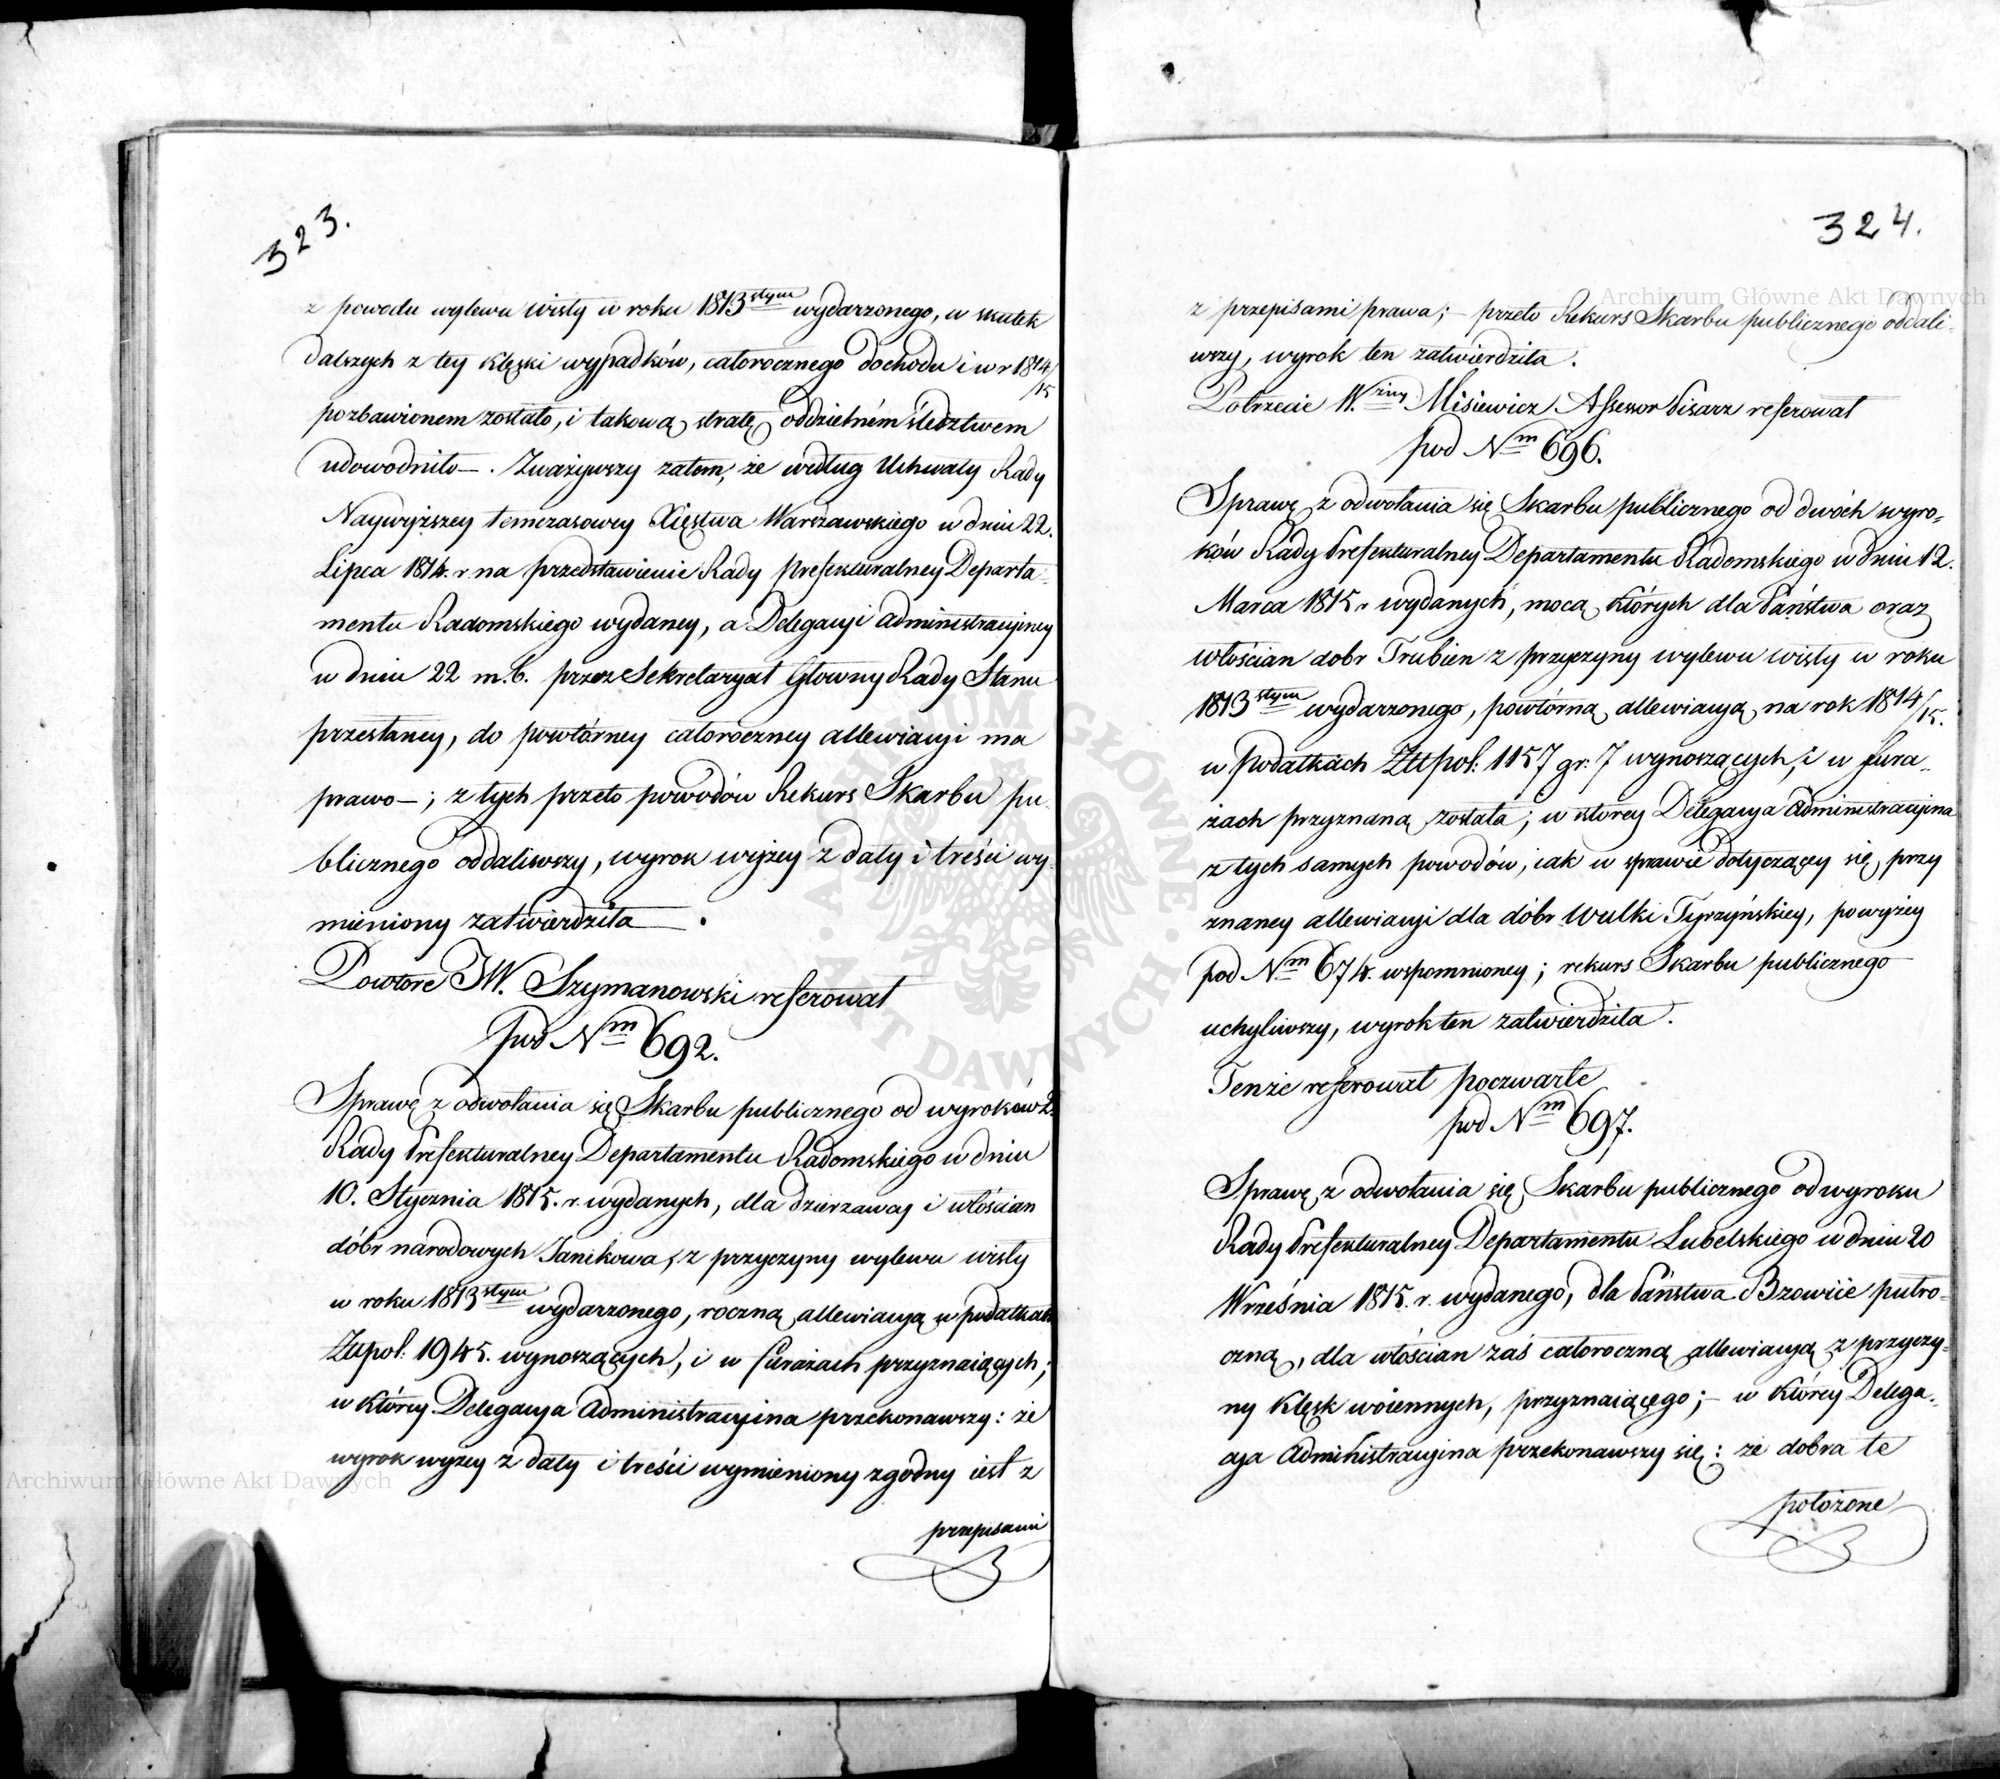 323.
z powodu wylewu wisły w roku 1813stym wydarzonego, w skutek
dalszych z tey klęski wypadków, całorocznego dochodu i w r 1814/15
pozbawionem zostało, i takową stratę oddzielném śledztwem
udowodniło —. Zważywszy zatem, że według Uchwały Rady
Naywyższey temczasowey Xięstwa Warszawskiego w dniu 22.
Lipca 1814. r na przedstawienie Rady Prefekturalney Departa-
mentu Radomskiego wydaney, a Delegacyi Administracyiney
w dniu 22 m. b. przez Sekretaryat Głowny Rady Stanu
przesłaney, do powtórney całoroczney allewiacyi ma
prawo —; z tych przeto powodów Rekurs Skarbu pu-
blicznego oddaliwszy, wyrok wyżey z daty i treści wy-
mieniony zatwierdziła — .
Powtore JW. Szymanowski referował
pod Nm 692.
Sprawę z odwołania się Skarbu publicznego od wyroków 2.
Rady Prefekturalney Departamentu Radomskiego w dniu
10. Stycznia 1815. r. wydanych, dla dzierzawcy i włościan
dóbr narodowych Janikowa, z przyczyny wylewu wisły
w roku 1813stym wydarzonego, roczną allewiacyą w podatkach
Złłpol: 1945. wynoszących, i w furażach przyznaiących;
w którey Delegacya Administracyina przekonawszy: że
wyrok wyżey z daty i treści wymieniony zgodny iest z
przepisami
324.
z przepisami prawa; — przeto Rekurs Skarbu publicznego oddali-
wszy, wyrok ten zatwierdziła.
Potrzecie W. Misiewicz Assessor Pisarz referował
pod Nm 696.
Sprawę z odwołania się Skarbu publicznego od dwóch wyro-
ków Rady Prefekturalney Departamentu Radomskiego w dniu 12.
Marca 1815 r wydanych, mocą których dla Państwa oraz
włościan dobr Trubien z przyczyny wylewu wisły w roku
1813stym wydarzonego, powtórną allewiacyą na rok 1814/15.
w podatkach Złłpol: 1157 gr: 7 wynoszących, i w fura-
żach przyznaną została; w ktorey Delegacya Administracyina
z tych samych powodów, iak w sprawie dotyczącey się przy
znaney allewiacyi dla dóbr Wulki Tyrzyńskiey, powyżey
pod Nm 674. wspomnioney; rekurs Skarbu publicznego
uchyliwszy, wyrok ten zatwierdziła.
Tenże referował poczwarte
pod Nm 697.
Sprawę z odwołania się Skarbu publicznego od wyroku
Rady Prefekturalney Departamentu Lubelskiego w dniu 20
Września 1815. r. wydanego, dla Państwa Bzowiie pułro-
czną, dla włościan zaś całoroczną allewiacyą z przyczy-
ny klęsk woiennych, przyznaiącego; — w którey Delega-
cya Administracyina przekonawszy się: że dobra te
położone
Archiwum Główne Akt Dawnych
Archiwum Główne Akt Dawnych
ARCHIWUM GŁÓWNE AKT DAWNYCH